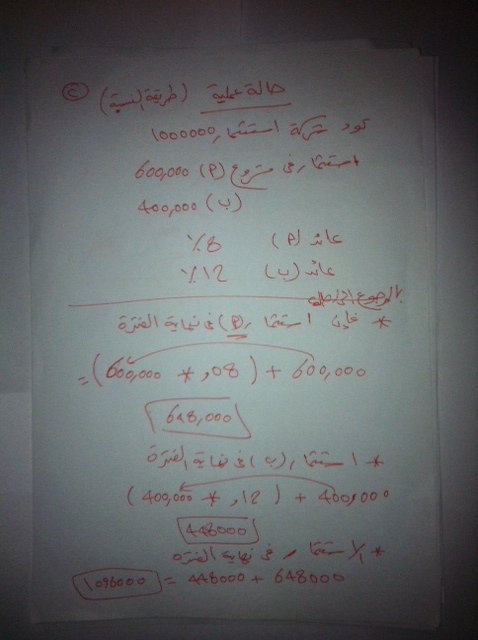 حالة عملية (طريقة النسبة)
تود شركة استثمار 1000000
استثمار فى مشروع (P) 600,000
(ب) 400,000
عائد (P) 8٪
عائد (ب) 12٪
* فإن استثمار (P) فى نهاية الفترة
600,000 + (600,000 * ,08) =
648,000
* استثمار (ب) فى نهاية الفترة
400,000 + (400,000 * ,12)
448000
* الاستثمار فى نهاية الفترة
648000 + 448000 = 1096000